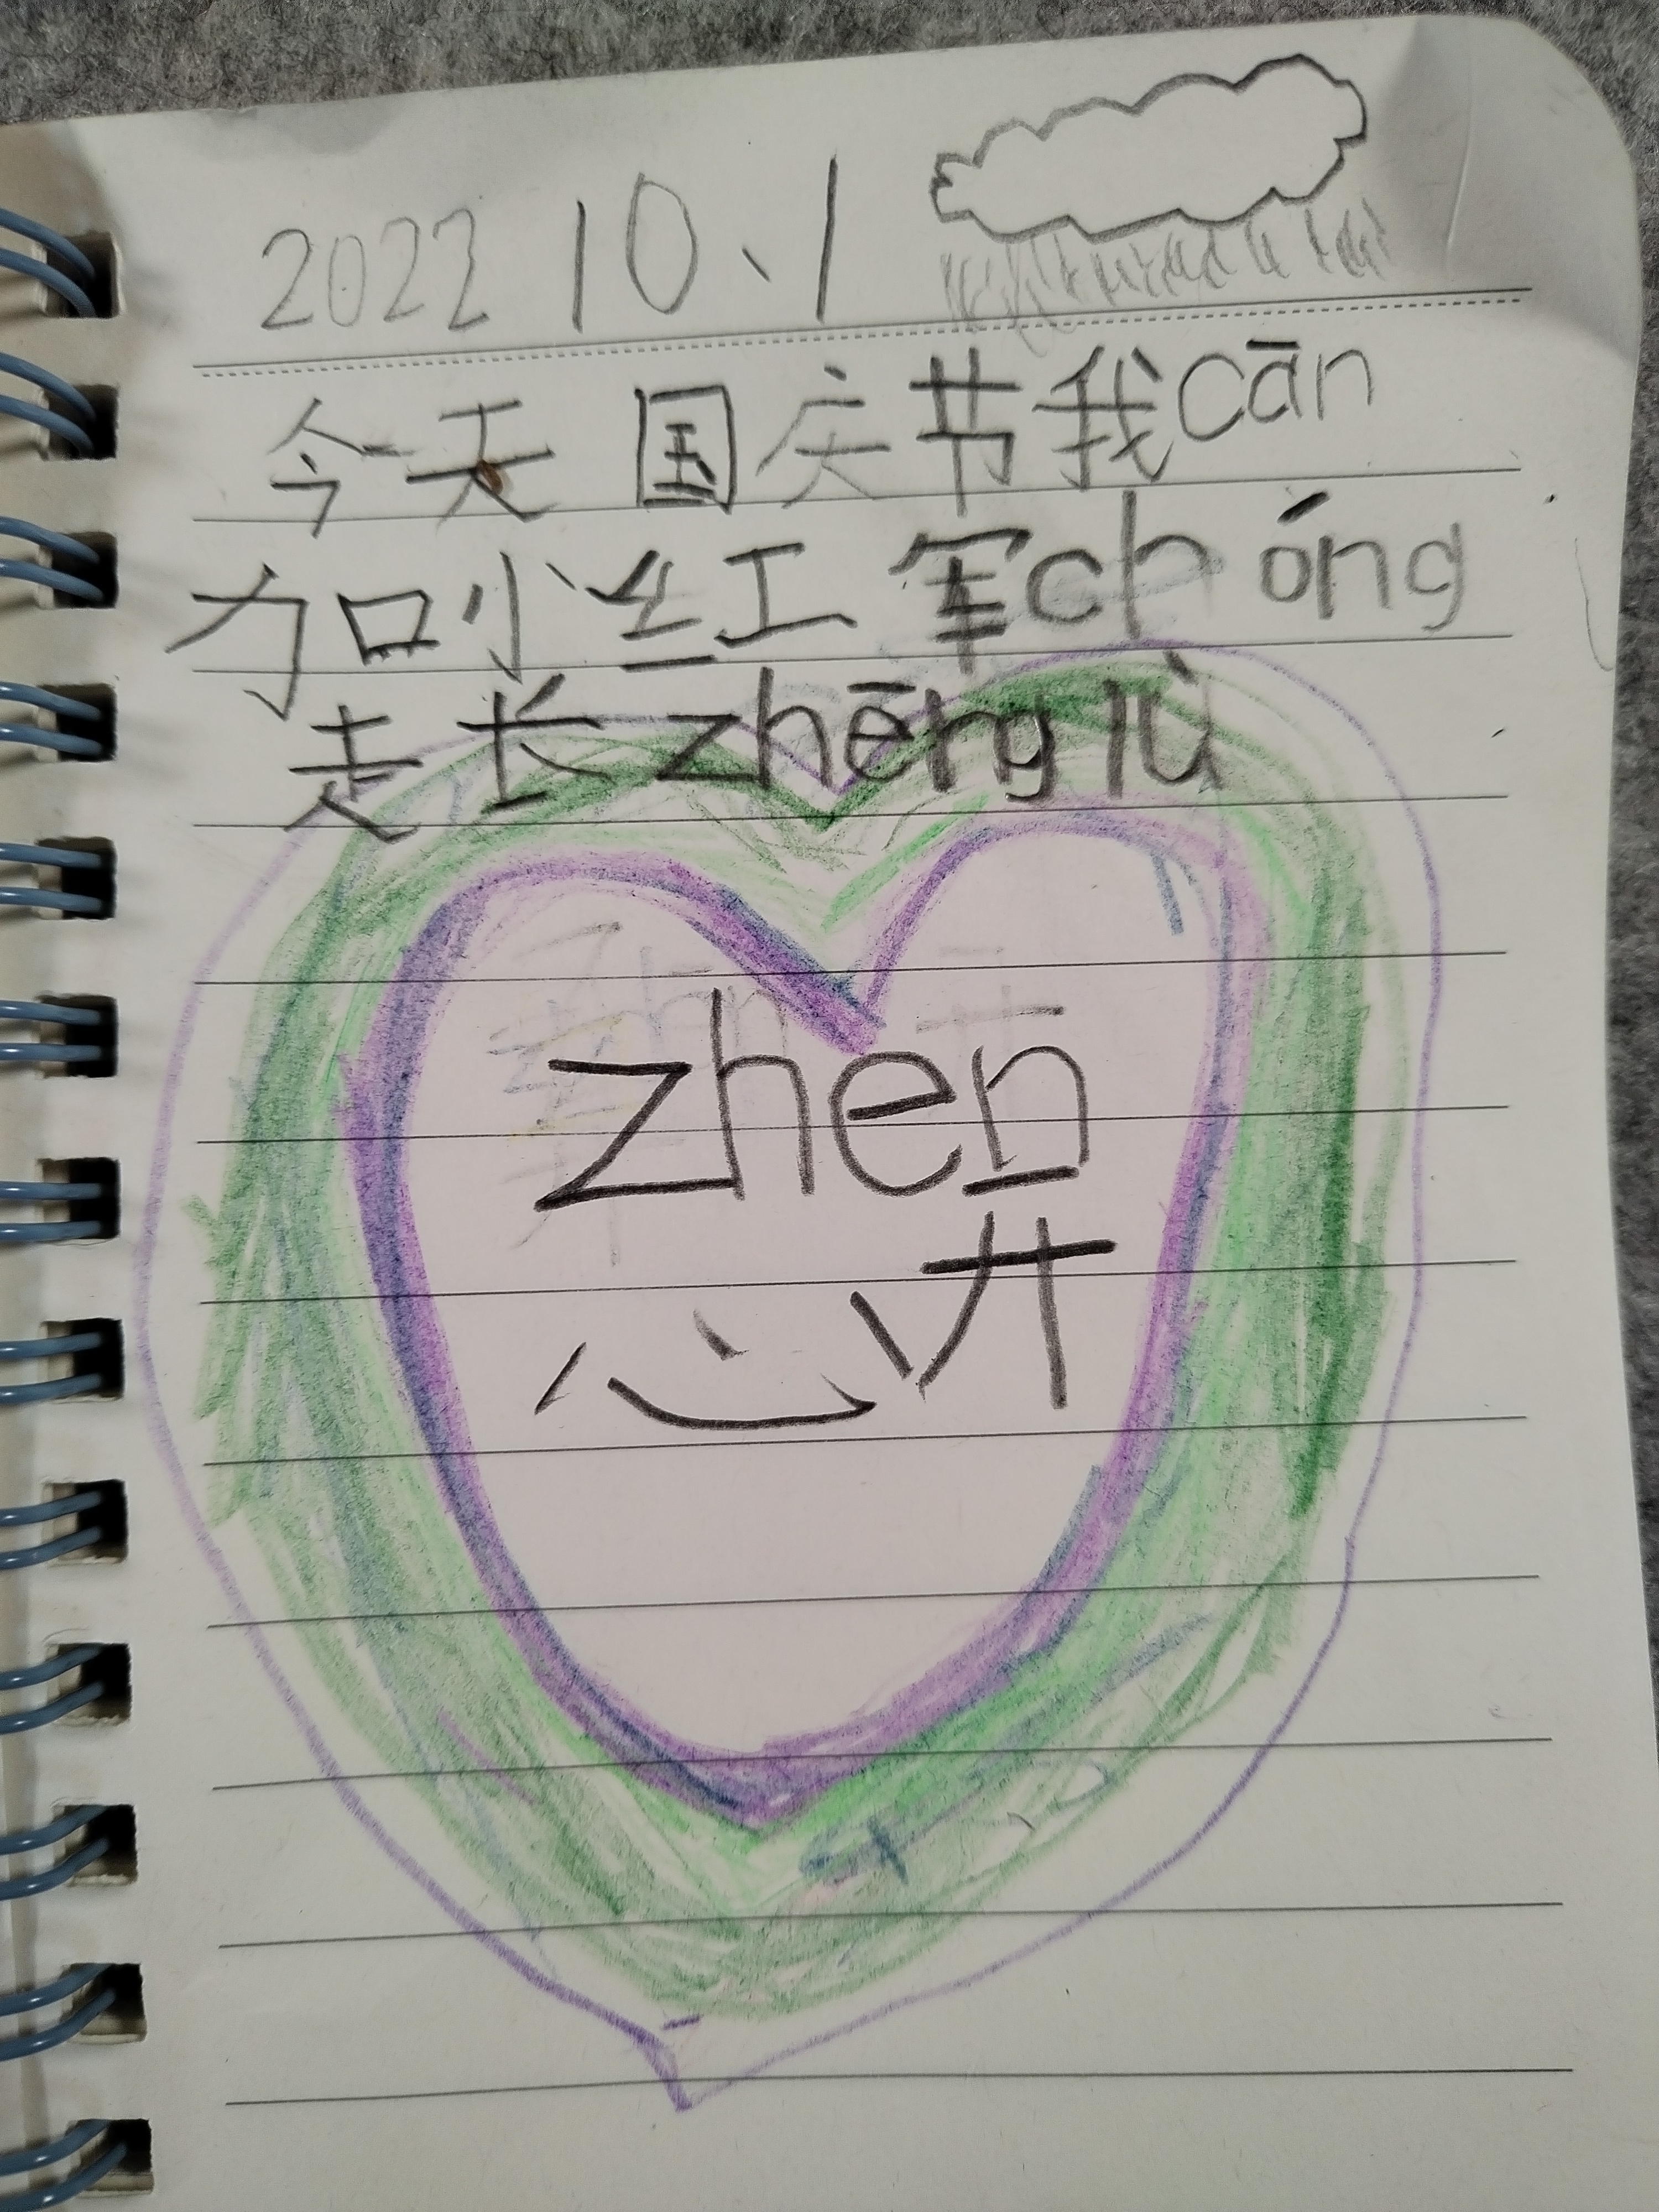 2022 10、1
今天国庆节我cān
加小红军chóng
走长zhēng lù
zhen
心开